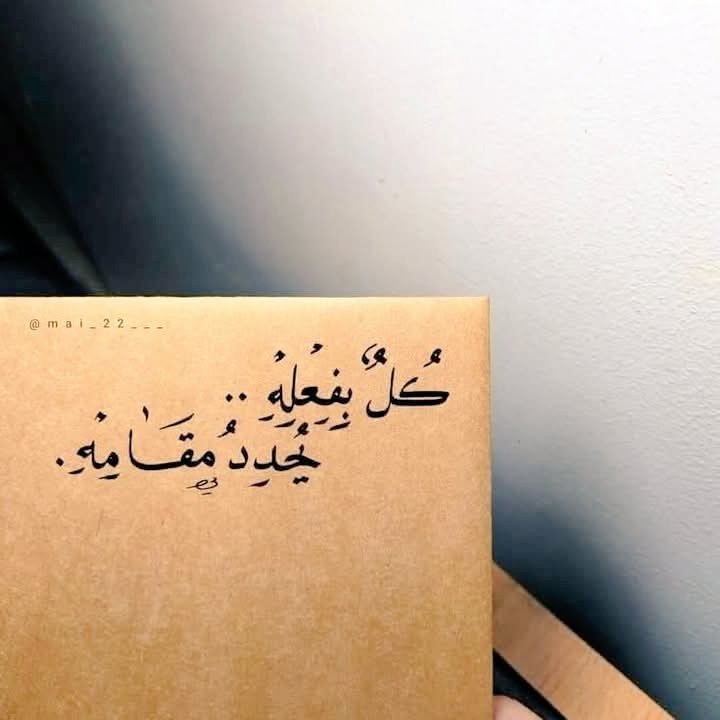 @mai_22___
كُلٌ بِفِعْلِهِ ..
يُحدِدُ مُقَامِهِ.